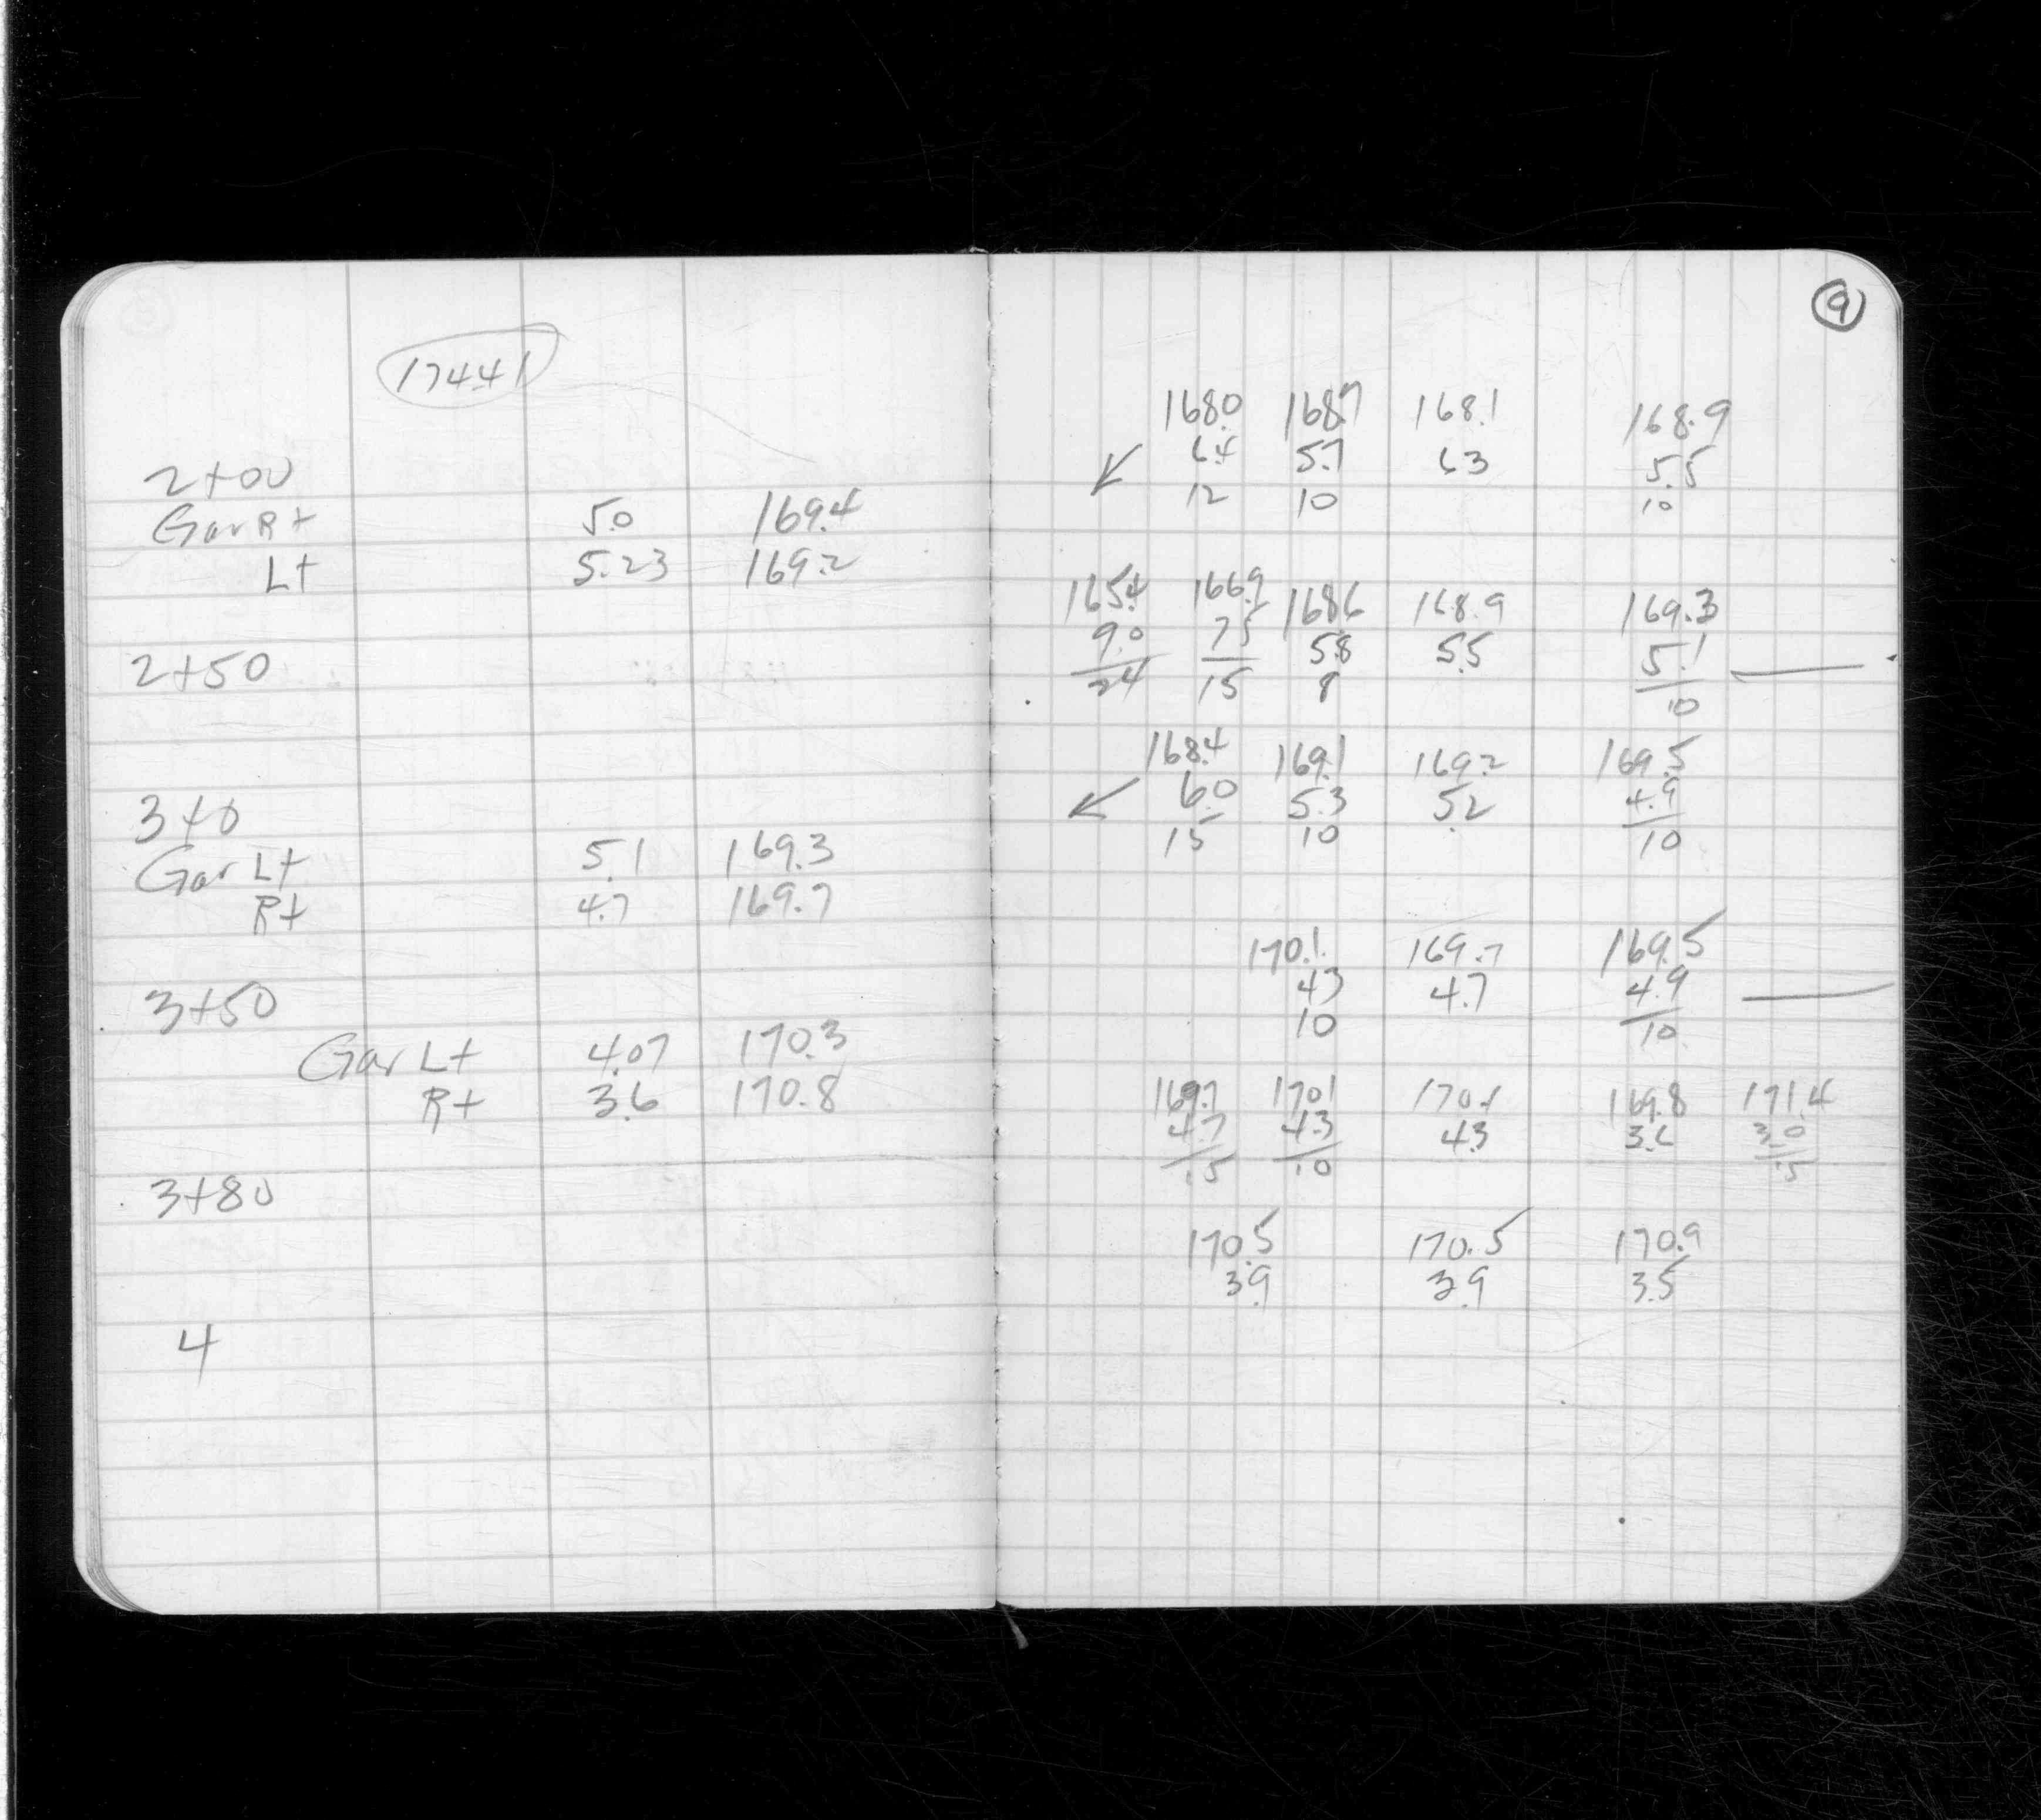 174.41
2+00
Gar Rt 5.0 169.4
Lt 5.23 169.2
2+50
3+0
Gar Lt 5.1 169.3
Rt 4.7 169.7
3+50
Gar Lt 4.07 170.3
Rt 3.6 170.8
3+80
4
9
168.0 168.7 168.1 168.9
6.4 5.7 6.3 5.5
12 10 10
165.4 166.9 168.6 168.9 169.3
9.0 7.5 5.8 5.5 5.1
24 15 8 10
168.4 169.1 169.2 169.5
6.0 5.3 5.2 4.9
15 10 10
170.1 169.7 169.5
4.3 4.7 4.9
10 10
169.7 170.1 170.1 169.8 171.4
4.7 4.3 4.3 3.6 3.0
15 10 15
170.5 170.5 170.9
3.9 3.9 3.5